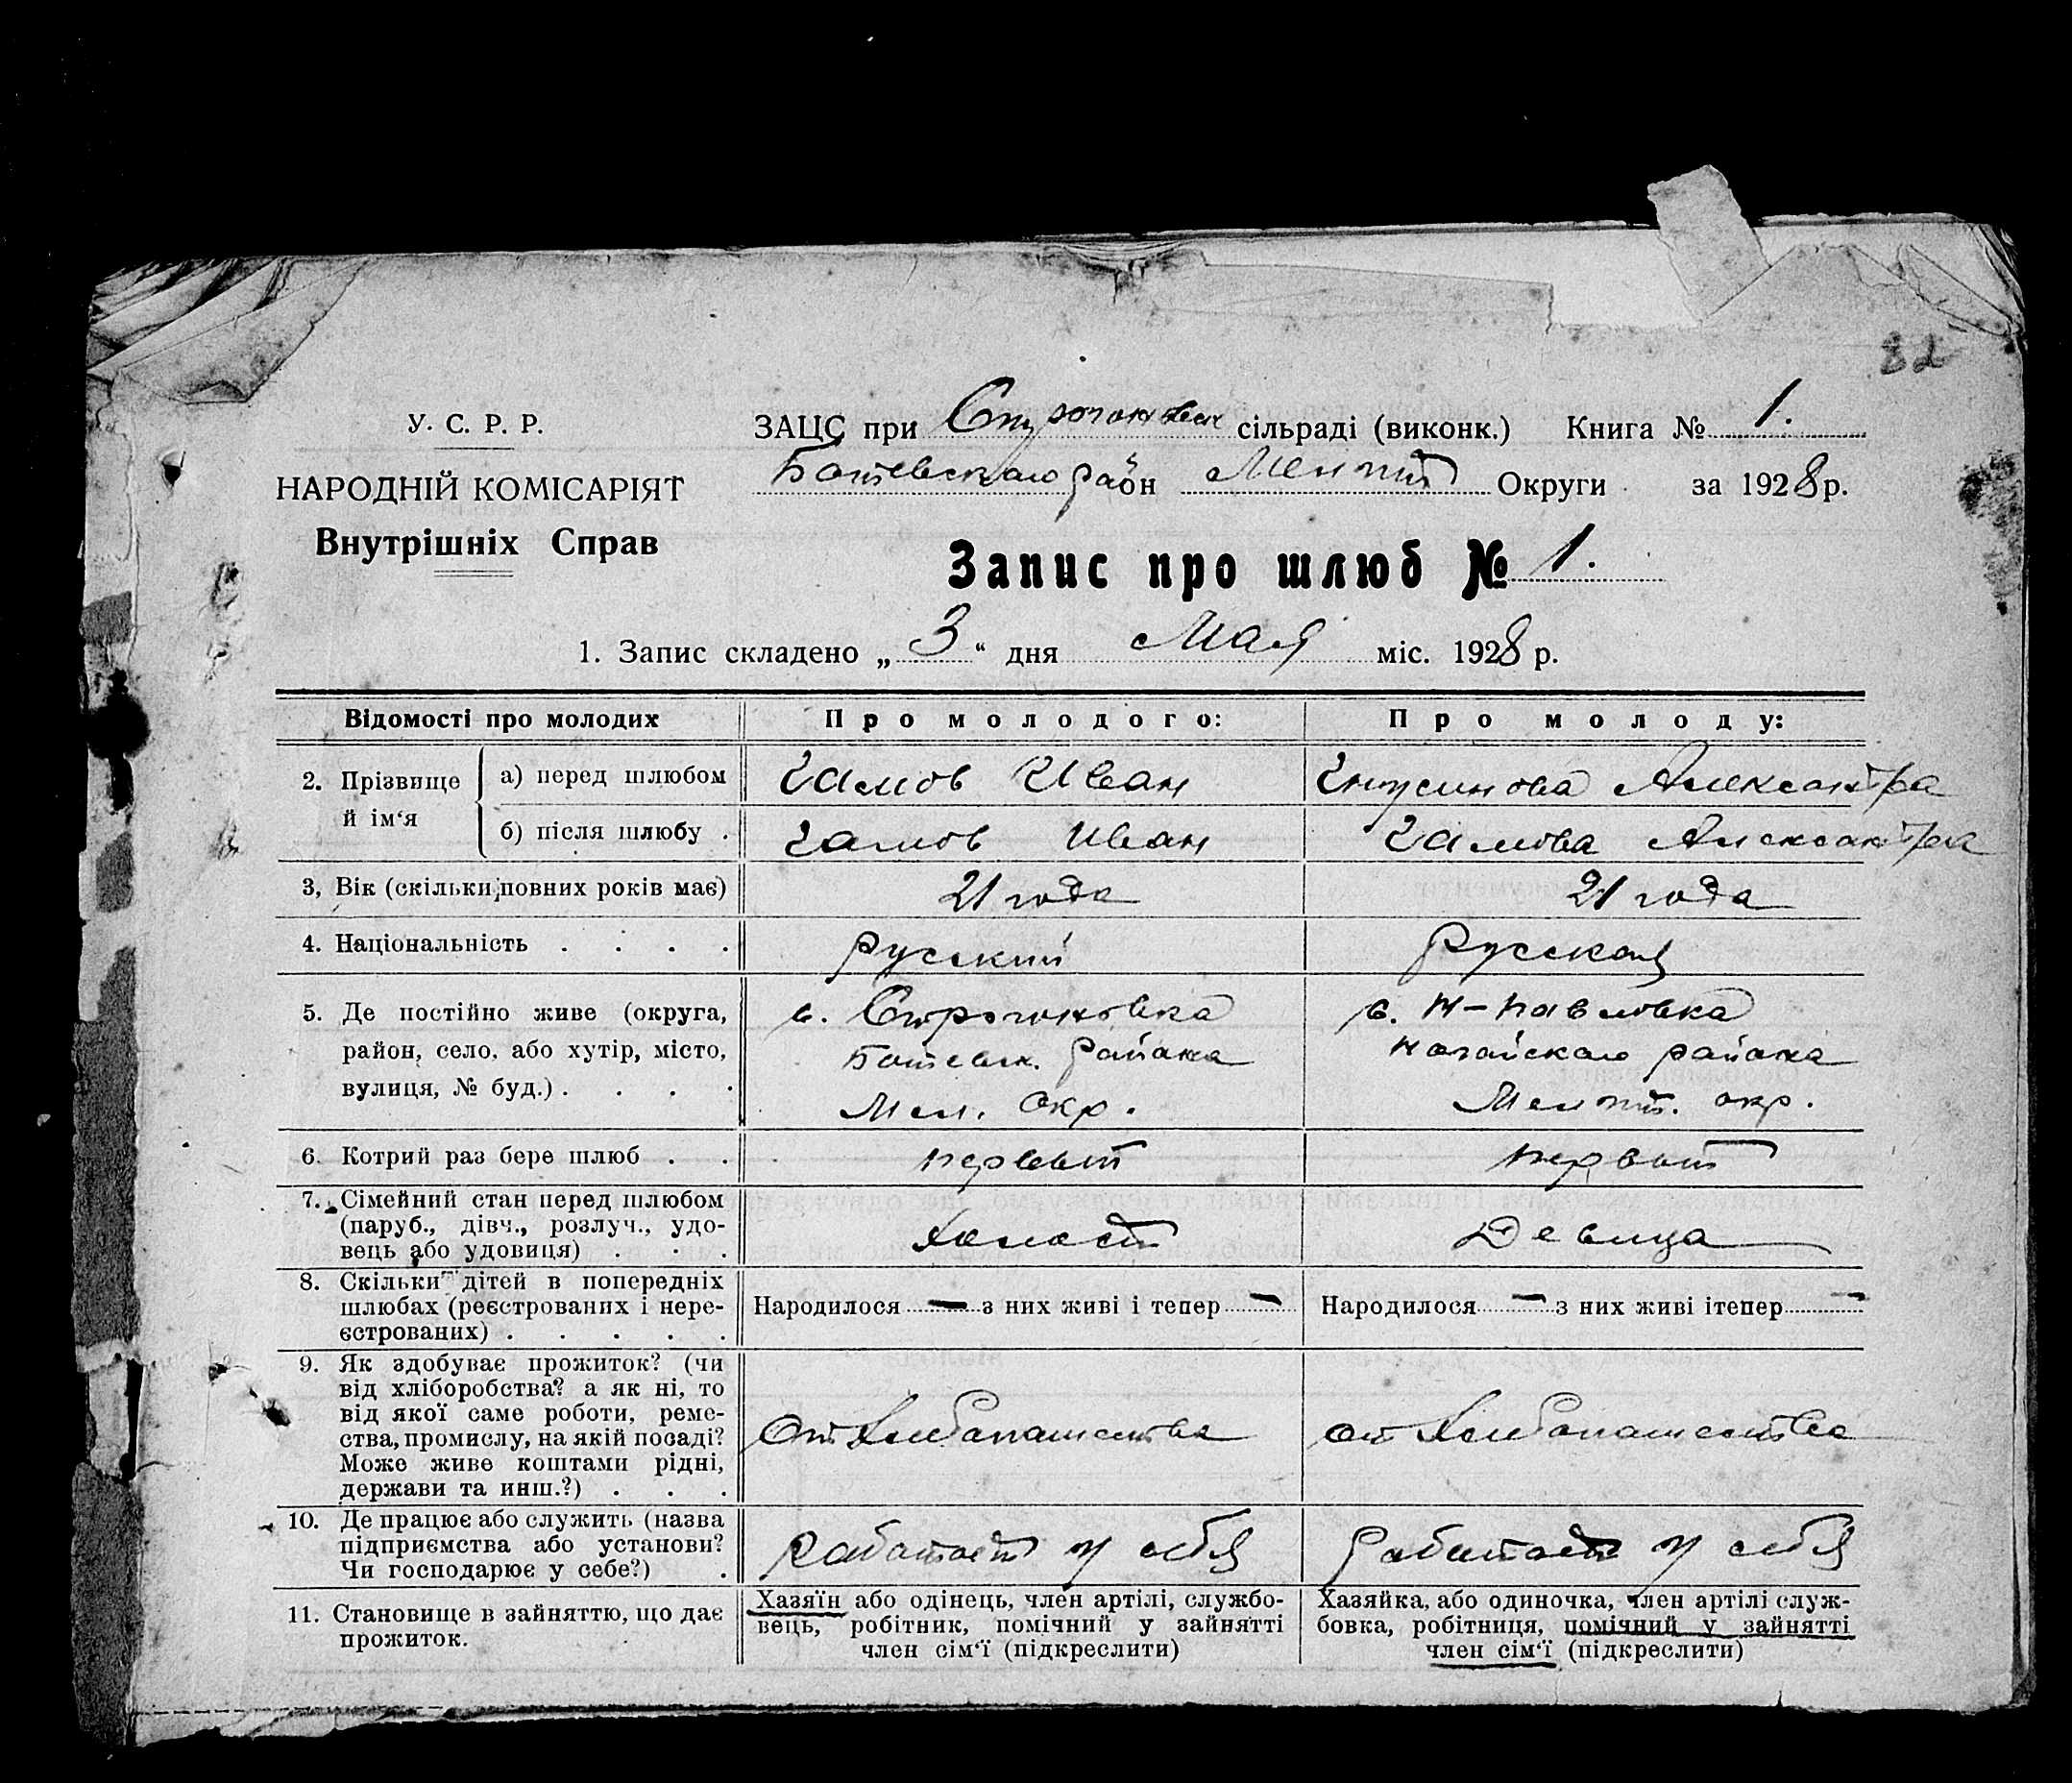 82
У. С. Р. Р.
НАРОДНІЙ КОМІСАРІЯТ
Внутрішніх Справ
ЗАЦС при сільраді (виконк.) Книга № 1.
Ботевского район Мелит Округи за 1928 р.
Запис про шлюб № 1.
1. Запис складено „ 3 “ дня Мая міс. 1928 р.
Відомості про молодих
Про молодого:
Про молоду:
2. Прізвище й ім‘я
а) перед шлюбом
Чамов Иван
Александра
б) після шлюбу .
Чамов Иван
Чамова Александра
3, Вік (скільки повних років має)
21 года
21 года
4. Національність . . . .
Русский
Русская
5. Де постійно живе (округа,
район, село, або хутір, місто,
вулиця, № буд.) . . . .
с. Строгоновка
Ботевск. Района
Мел. Окр.
с. Н-Павловка
Ногайского района
Мелит. окр.
6. Котрий раз бере шлюб . .
первый
первый
7. Сімейний стан перед шлюбом
(паруб., дівч., розлуч., удо-
вець або удовиця) . . .
Холост
Девица
8. Скільки дітей в попередніх
шлюбах (реєстрованих і нере-
єстрованих) . . . . .
Народилося — з них живі і тепер —
Народилося — з них живі ітепер —
9. Як здобуває прожиток? (чи
від хліборобства? а як ні, то
від якої саме роботи, реме-
ства, промислу, на якій посаді?
Може живе коштами рідні,
держави та инш.?) . . .
От Хлебопашества
от Хлебопашества
10. Де працює або служить (назва
підприємства або установи?
Чи господарює у себе?) .
Работает у себя
Работает у себя
11. Становище в зайняттю, що дає
прожиток.
Хазяїн або одінець, член артілі, службо-
вець, робітник, помічний у зайнятті
член сім‘ї (підкреслити)
Хазяйка, або одиночка, член артілі служ-
бовка, робітниця, помічний у зайнятті
член сім‘ї (підкреслити)